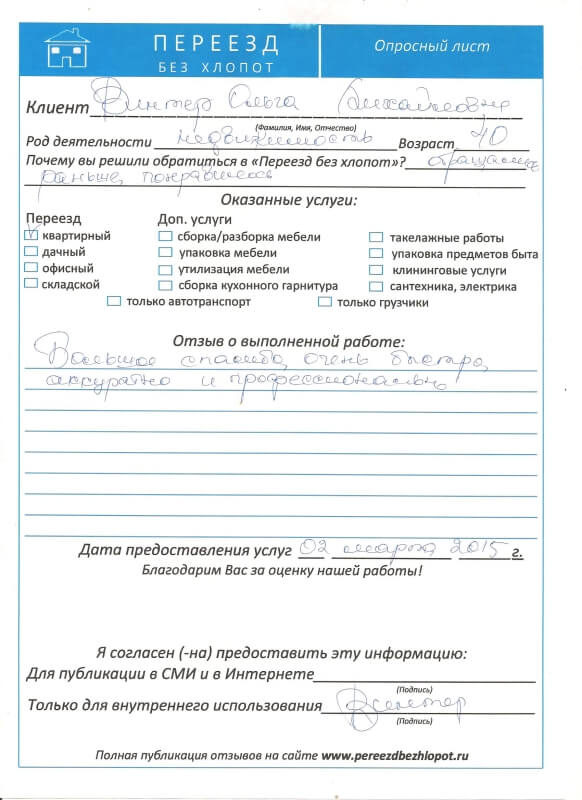 ПЕРЕЕЗД
БЕЗ ХЛОПОТ
Опросный лист
Клиент Винтер Ольга Михайловна
(Фамилия, Имя, Отчество)
Род деятельности недвижимость Возраст 40
Почему вы решили обратиться в «Переезд без хлопот»? обращались
раньше, понравилось
Оказанные услуги:
Переезд Доп. услуги
квартирный сборка/разборка мебели такелажные работы
дачный упаковка мебели упаковка предметов быта
офисный утилизация мебели клининговые услуги
складской сборка кухонного гарнитура сантехника, электрика
только автотранспорт только грузчики
Отзыв о выполненной работе:
Большое спасибо, очень быстро,
аккуратно и профессионально
Дата предоставления услуг 02 марта 2015 г.
Благодарим Вас за оценку нашей работы!
Я согласен (-на) предоставить эту информацию:
Для публикации в СМИ и в Интернете
(Подпись)
Только для внутреннего использования Винтер
(Подпись)
Полная публикация отзывов на сайте www.pereezdbezhlopot.ru